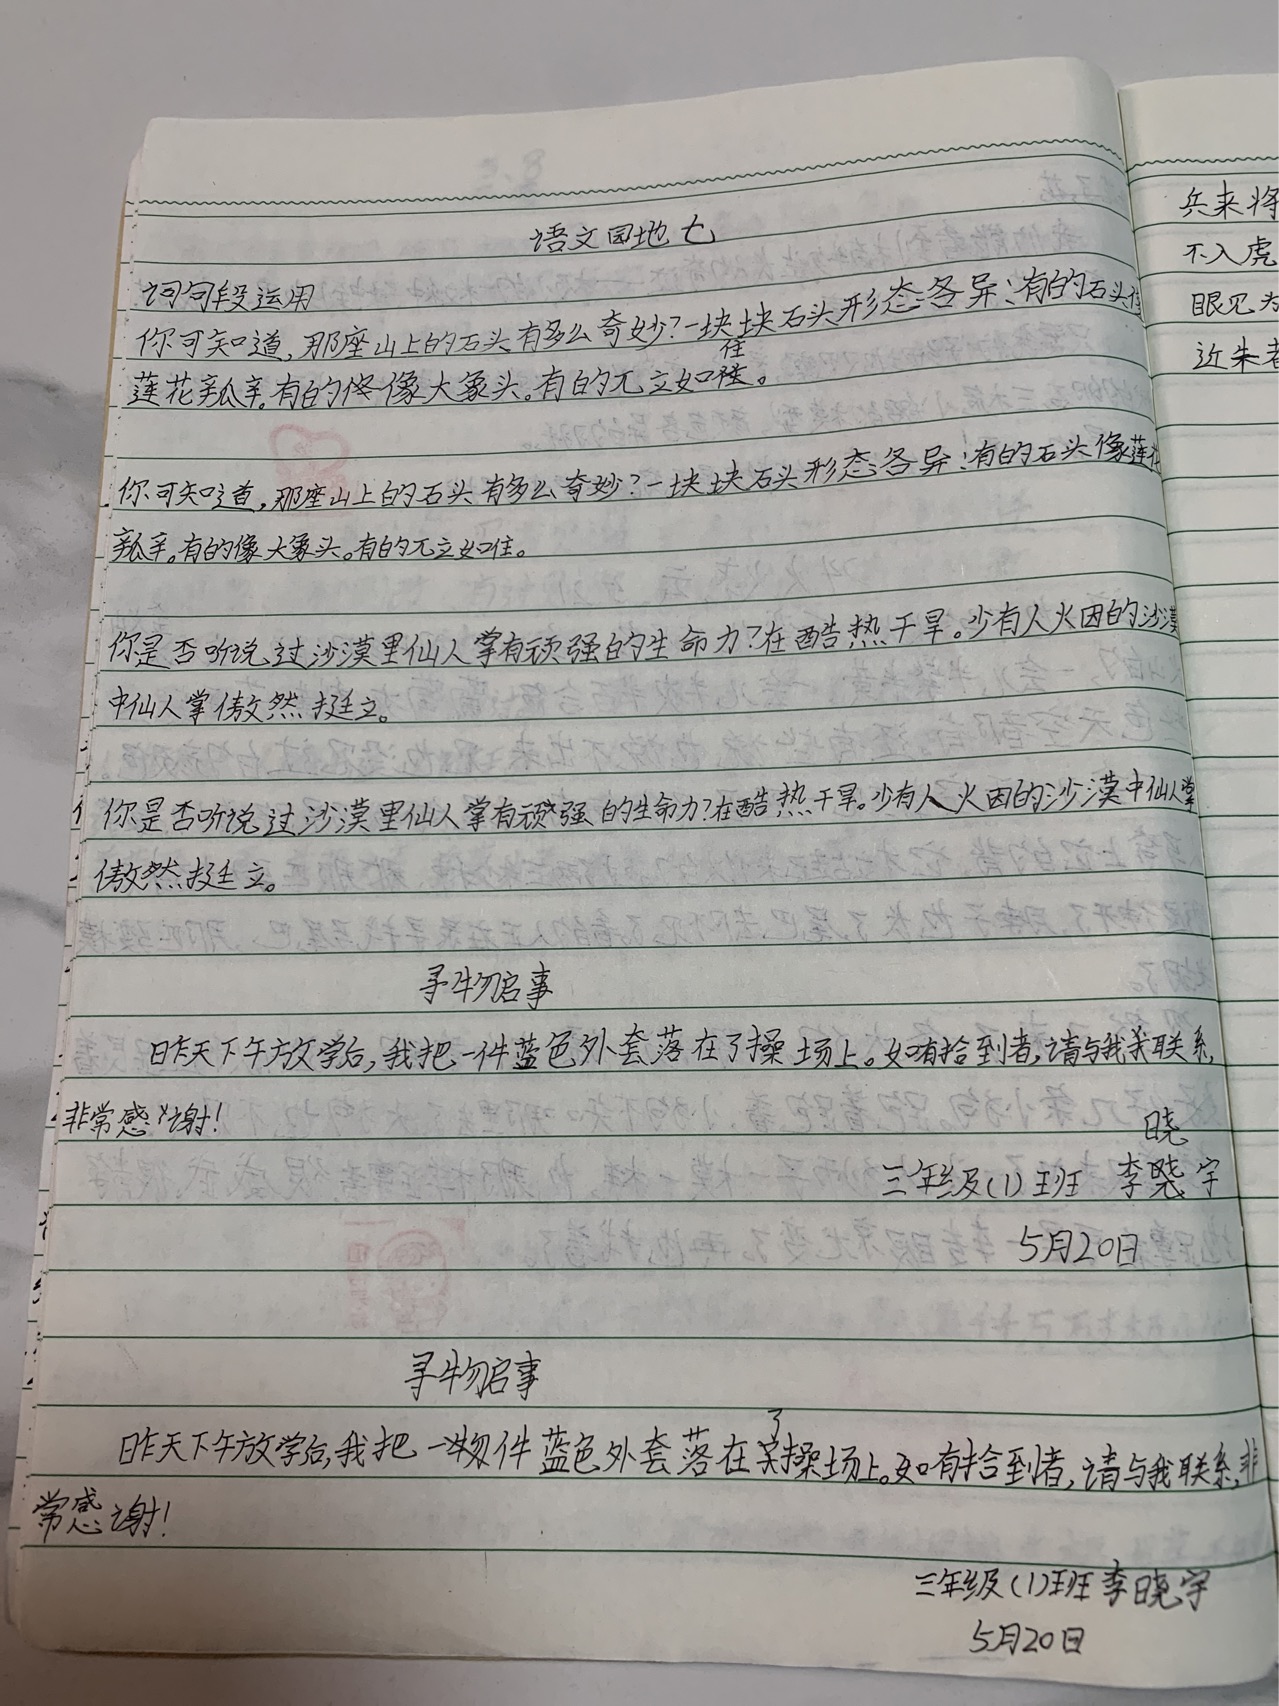 语文园地七
词句段运用
你可知道,那座山上的石头有多么奇妙?一块块石头形态各异:有的石头
住
莲花瓣。有的像大象头。有的兀立如。
你可知道,那座山上的石头有多么奇妙?一块块石头形态各异:有的石头像莲花
瓣。有的像大象头。有的兀立如。
你是否听说过沙漠里仙人掌有顽强的生命力?在酷热干旱。少有人火因的沙漠
中仙人掌傲然挺立。
你是否听说过沙漠里仙人掌有顽强的生命力?在酷热干旱。少有人火因的沙漠中仙人掌
傲然挺立。
寻物启事
昨天下午放学后,我把一件蓝色外套落在了操场上。如有拾到者,请与我联系,
非常感谢!
晓
三年级(1)班 李晓宇
5月20日
寻物启事
了
昨天下午放学后,我把一件蓝色外套落在操场上。如有拾到者,请与我联系,非
常感谢!
三年级(1)班李晓宇
5月20日
兵来将
不入虎
眼见为
近朱者